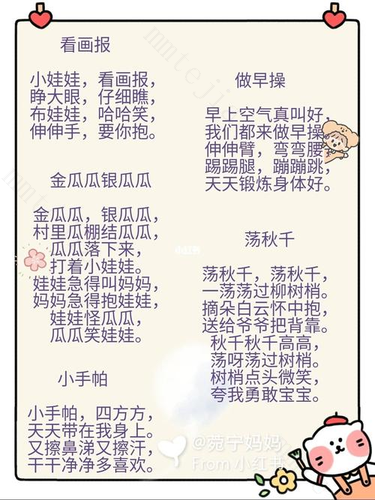 看画报
小娃娃，看画报，
睁大眼，仔细瞧，
布娃娃，哈哈笑，
伸伸手，要你抱。
金瓜瓜银瓜瓜
金瓜瓜，银瓜瓜，
村里瓜棚结瓜瓜，
瓜瓜落下来，
打着小娃娃。
娃娃急得叫妈妈，
妈妈急得抱娃娃，
娃娃怪瓜瓜，
瓜瓜笑娃娃。
小手帕
小手帕，四方方，
天天带在我身上。
又擦鼻涕又擦汗，
干干净净多喜欢。
做早操
早上空气真叫好，
我们都来做早操
伸伸臂，弯弯腰
踢踢腿，蹦蹦跳，
天天锻炼身体好。
荡秋千
荡秋千，荡秋千，
一荡荡过柳树梢。
摘朵白云怀中抱，
送给爷爷把背靠。
秋千秋千高高，
荡呀荡过树梢。
树梢点头微笑，
夸我勇敢宝宝。
@菀宁妈妈
From 小红书